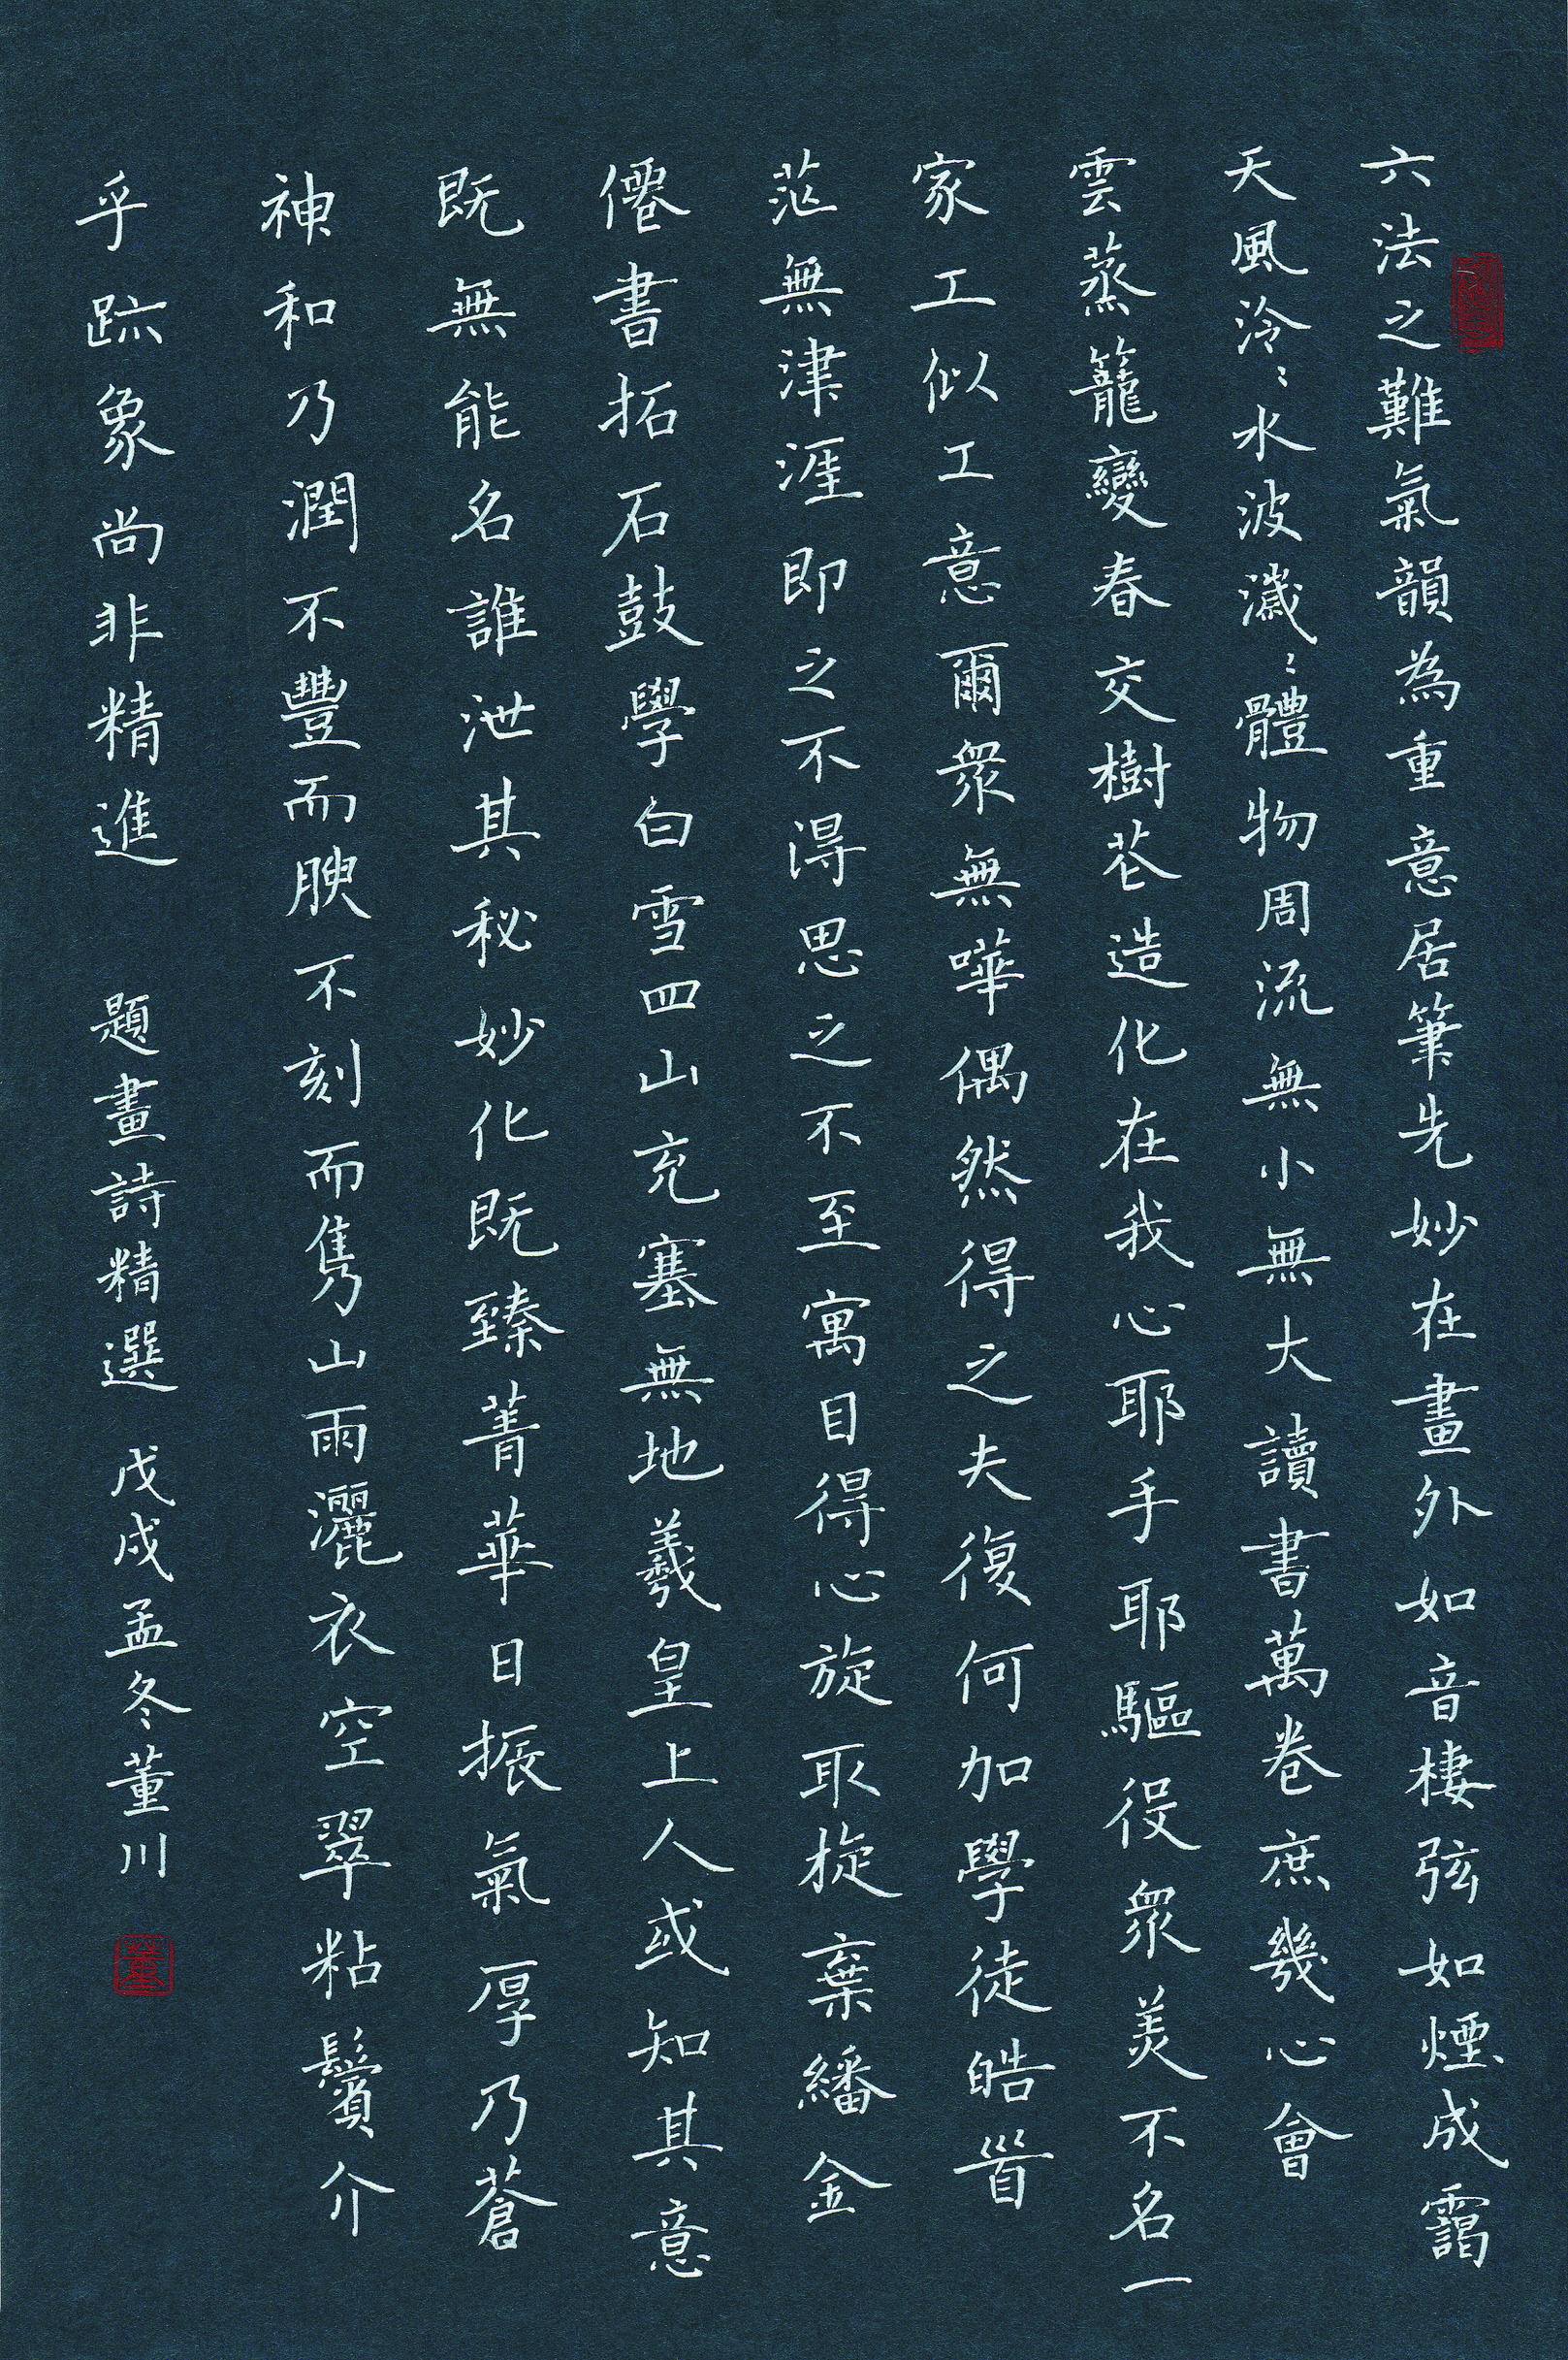 六法之難氣韻為重意居筆先妙在畫外如音棲弦如煙成靄
天風泠〻水波濊〻體物周流無小無大讀書萬卷庶幾心會
雲蒸籠變春交樹芲造化在我心耶手耶驅役眾美不名一
家工似工意爾眾無嘩偶然得之夫復何加學徒皓首
茫無津涯即之不得思之不至寓目得心旋取旋棄繙金
僊書拓石鼓學白雪四山充塞無地羲皇上人或知其意
既無能名誰泄其秘妙化既臻菁華日振氣厚乃蒼
神和乃潤不豐而腴不刻而雋山雨灑衣空翠粘鬢介
乎跡象尚非精進 題畫詩精選 戊戌孟冬董川
董